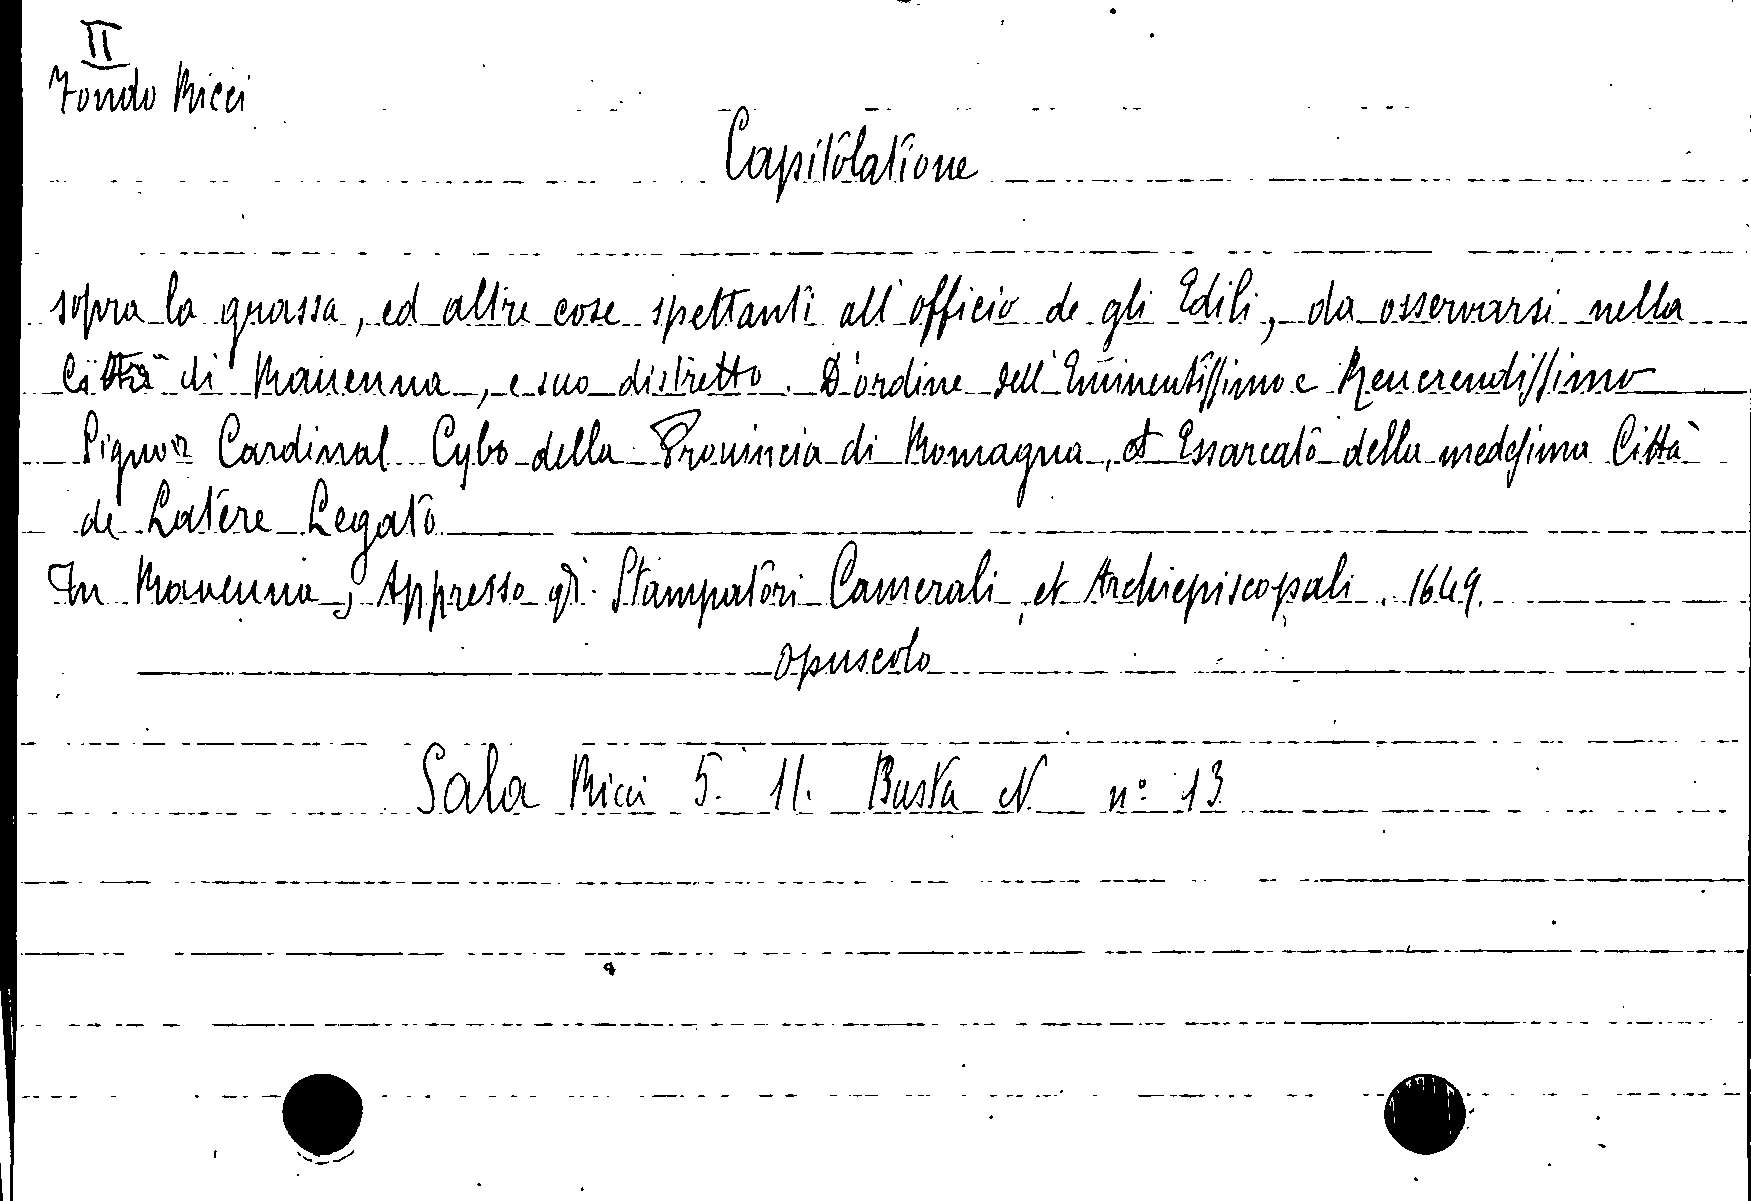 II
Fondo Ricci
Capitolatione
sopra la grassa, ed altre cose spettanti all'officio de gli Edili, da osservarsi nella
Città di Rauenna, e suo distretto. D'ordine dell'Eminentissimo e Reuerendissimo
Signor Cardinal Cybo della Prouincia di Romagna, et Essarcato della medesima Città
de Latere Legato
In Rauenna, Appresso gli Stampatori Camerali, et Archiepiscopali. 1649.
opuscolo
Sala Ricci 5. 11. Busta N. n° 13